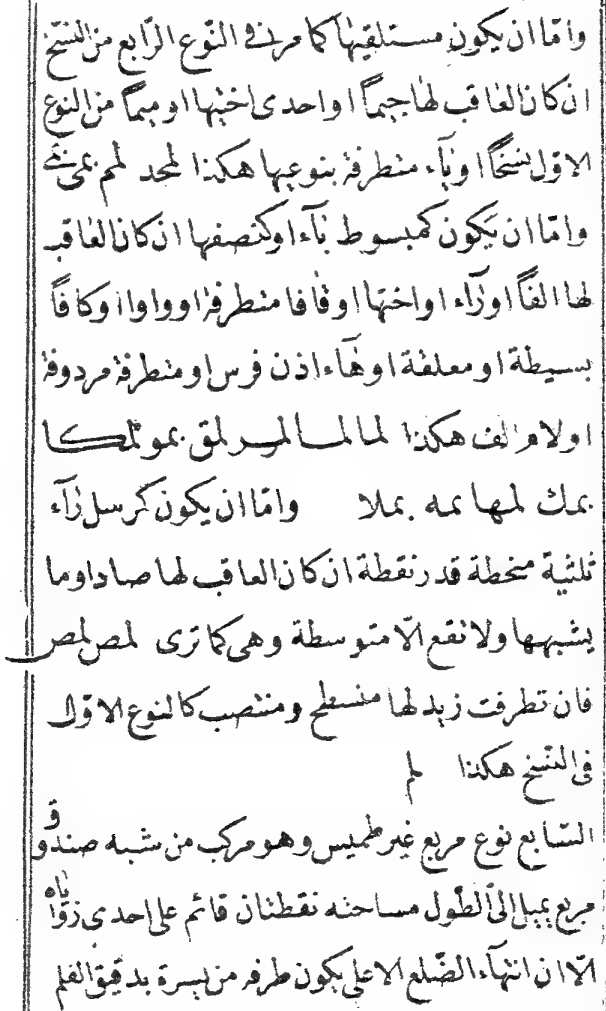 وامّا ان يكون مستلقيها كما مر فى النّوع الرّابع من النسخ
ان كان العاقب لها جيماً او احدى اختيها او ميماً من النوع
الاوّل نسخاً او يآء متطرفة بنوعيها هكذا لمحد لمم بمى
وامّا ان يكون كمبسوط بآء او كنصفها ان كان العاقب
لها الفاً او رآء او اختها او قافا متطرفة او واوا او كافاً
بسيطة او معلقة او هآء اذن فرس او متطرفة مردوفة
او لام الف هكذا لما لمـا لمـر لمق بمو لمكا
بمك لمها بمه بملا وامّا ان يكون كرسل رآء
ثلثية منحطة قدر نقطة ان كان العاقب لها صادا وما
يشبهها ولا تقع الّا متوسطة وهى كما ترى لمص لمص
فان تطرفت زيد لها منسطح ومنتصب كالنوع الاوّل
فى النّسخ هكذا لم
السّابع نوع مربع غير طميس وهو مركب من شبه صندوق
مربع يميل الى الطّول مساحته نقطتان قائم على احدى زواياه
الّا ان انتهآء الضّلع الاعلى يكون طرفه من يسرة بدقيق القلم